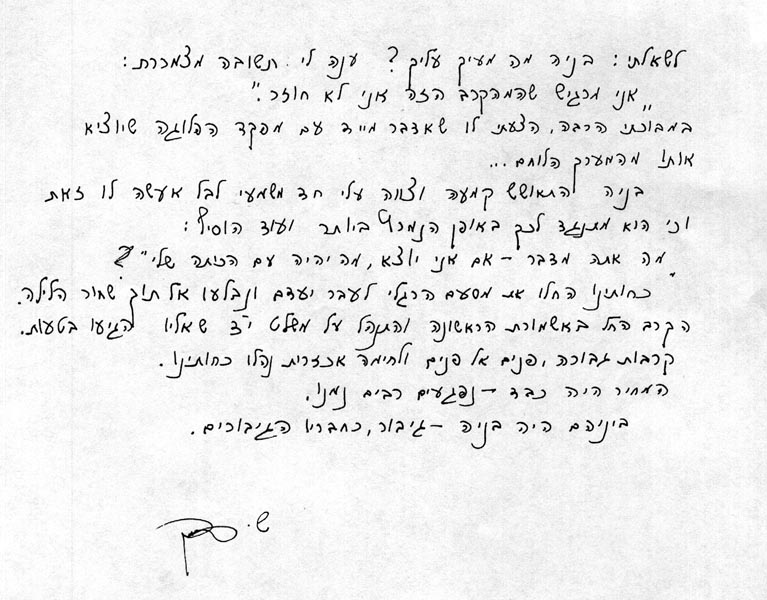 לשאלתי: בניה מה מעיק עליך? ענה לי תשובה מצמררת:
"אני מרגיש שמהקרב הזה אני לא חוזר."
במבוכתי הרבה, הצעתי לו שאדבר מייד עם מפקד הפלוגה שיוציא
אותו מהמערך הלוחם...
בניה התאושש קמעה וצווה עלי חד משמעי לבל אעשה לו זאת
וכי הוא מתנגד לכך באופן הנמרץ ביותר ועוד הוסיף:
"מה אתה מדבר - אם אני יוצא, מה יהיה עם הכיתה שלי"?
כוחותינו החלו את מסעם הרגלי לעבר יעדם ונבלעו אל תוך שחור הלילה.
הקרב החל באשמורת הראשונה והתנהל על משלט י"צ שאליו הגיעו בטעות.
קרבות גבורה, פנים אל פנים ולחימה אכזרית נהלו כוחותינו.
המחיר היה כבד - נפגעים רבים נמנו.
ביניהם היה בניה - גיבור, כחבריו הגיבורים.
ש.